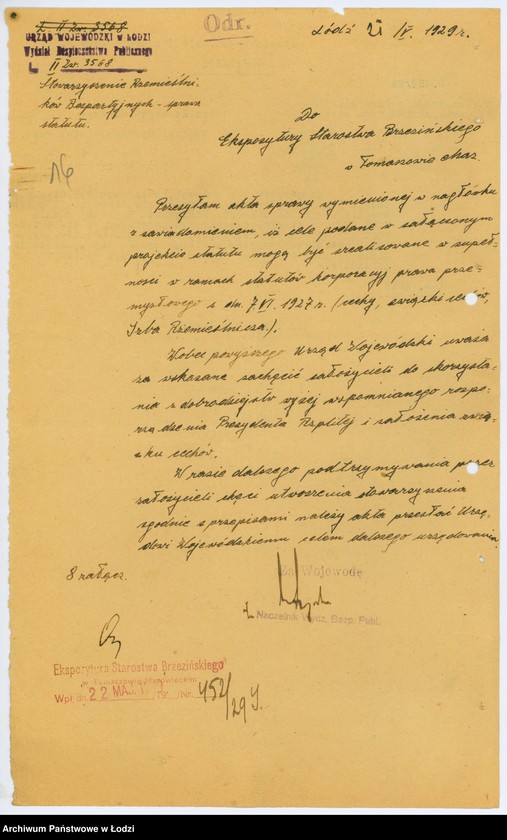 Odr.
L. II Zw. 3568
URZĄD WOJEWÓDZKI W ŁODZI
Wydział Bezpieczeństwa Publicznego
L. II Zw. 3568
Stowarzyszenie Rzemieślni-
ków Bezpartyjnych - sprawa
statutu.
Łódź 21 /V. 1929 r.
Do
Ekspozytury Starostwa Brzezińskiego
w Tomaszowie Maz.
Przesyłam akta sprawy wymienionej w nagłówku
z zawiadomieniem, iż cele podane w załączonym
projekcie statutu mogą być zrealizowane w zupeł-
ności w ramach statutów korporacyj prawa prze-
mysłowego z dn. 7 VI. 1927 r. (cechy, związki cechów,
Izba Rzemieślnicza).
Wobec powyższego Urząd Wojewódzki uważa
za wskazane zachęcić założycieli do skorzysta-
nia z dobrodziejstw wyżej wspomnianego rozpo-
rządzenia Prezydenta Rzplitej i założenia zwią-
zku cechów.
W razie dalszego podtrzymywania przez
założycieli chęci utworzenia stowarzyszenia
zgodnie z przepisami należy akta przesłać Urzę-
dowi Wojewódzkiemu celem dalszego urzędowania.
8 załącz.
Za Wojewodę
Naczelnik Wydz. Bezp. Publ.
Ekspozytura Starostwa Brzezińskiego
w Tomaszowie Mazowieckim
Wpł. dn. 22 MAJ. Nr. 452/29 r.
Archiwum Państwowe w Łodzi